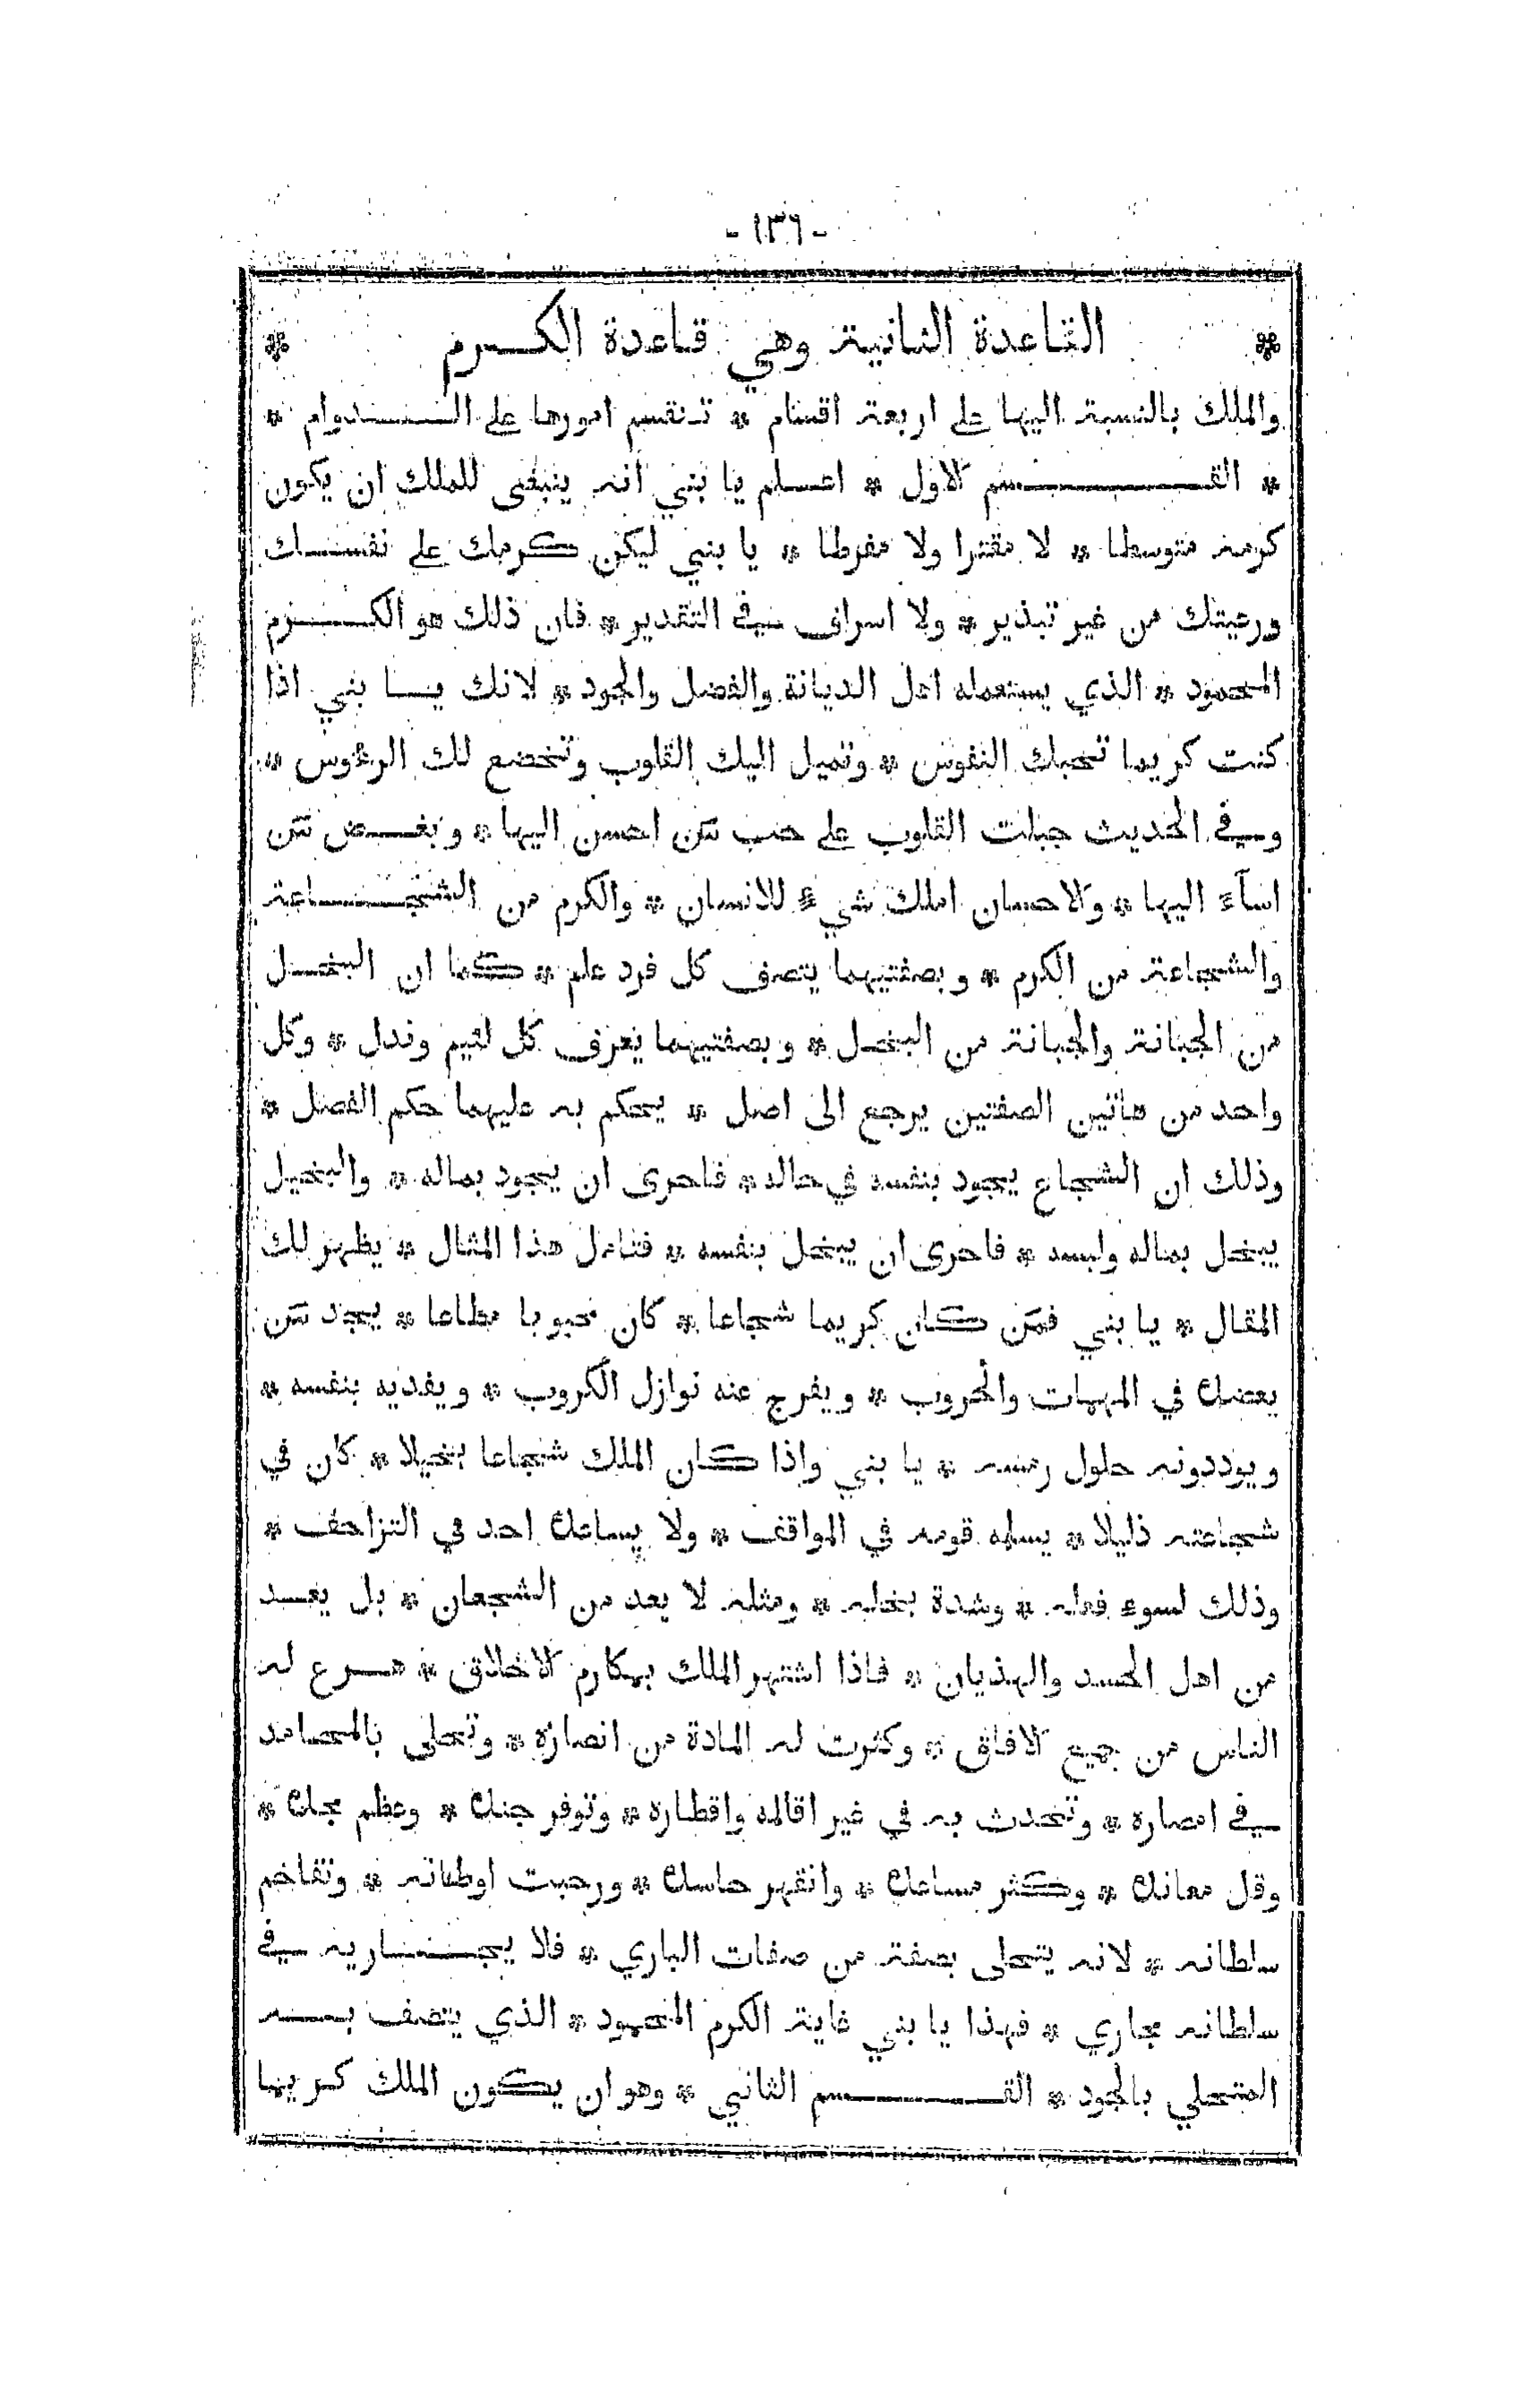 - ١٣٦ -
* القاعدة الثانية وهي قاعدة الكرم *
والملك بالنسبة اليها على اربعة اقسام * تنقسم امورها على الدوام *
* القسم الاول * اعلم يا بني انه ينبغى للملك ان يكون
كرمه متوسطا * لا مقترا ولا مفرطا * يا بني ليكن كرمك على نفسك
ورعيتك من غير تبذير * ولا اسراف في التقدير * فان ذلك هو الكرم
المحمود * الذي يستعمله اهل الديانة والفضل والجود * لانك يا بني اذا
كنت كريما تحبك النفوس * وتميل اليك القلوب وتخضع لك الرءوس *
وفي الحديث جبلت القلوب على حب من احسن اليها * وبغض من
اسآء اليها * والاحسان املك شيء للانسان * والكرم من الشجاعة
والشجاعة من الكرم * وبصفتيهما يتصف كل فرد علم * كما ان البخل
من الجبانة والجبانة من البخل * وبصفتيهما يعرف كل لئيم وندل * وكل
واحد من هاتين الصفتين يرجع الى اصل * يحكم به عليهما حكم الفصل *
وذلك ان الشجاع يجود بنفسه في حاله * فاحرى ان يجود بماله * والبخيل
يبخل بماله ولبسه * فاحرى ان يبخل بنفسه * فتامل هذا المثال * يظهر لك
المقال * يا بني فمن كان كريما شجاعا * كان محبوبا مطاعا * يجد من
يعضده في المهمات والحروب * ويفرج عنه نوازل الكروب * ويفديه بنفسه *
ويوددونه حلول رمسه * يا بني واذا كان الملك شجاعا بخيلا * كان في
شجاعته ذليلا * يسلمه قومه في المواقف * ولا يساعده احد في التزاحف *
وذلك لسوء فعله * وشدة بخله * ومثله لا يعد من الشجعان * بل يعد
من اهل الحسد والهذيان * فاذا اشتهر الملك بمكارم الاخلاق * هرع له
الناس من جميع الافاق * وكثرت له المادة من انصاره * وتحلى بالمحامد
في امصاره * وتحدث به في غير اقاليمه واقطاره * وتوفر جنده * وعظم مجده *
وقل معانده * وكثر مساعده * وانقهر حاسده * ورحبت اوطانه * وتفاخم
سلطانه * لانه يتحلى بصفة من صفات الباري * فلا يجاريه في
سلطانه مجاري * فهذا يا بني غاية الكرم المحمود * الذي يتصف به
المتحلي بالجود * القسم الثاني * وهو ان يكون الملك كريما